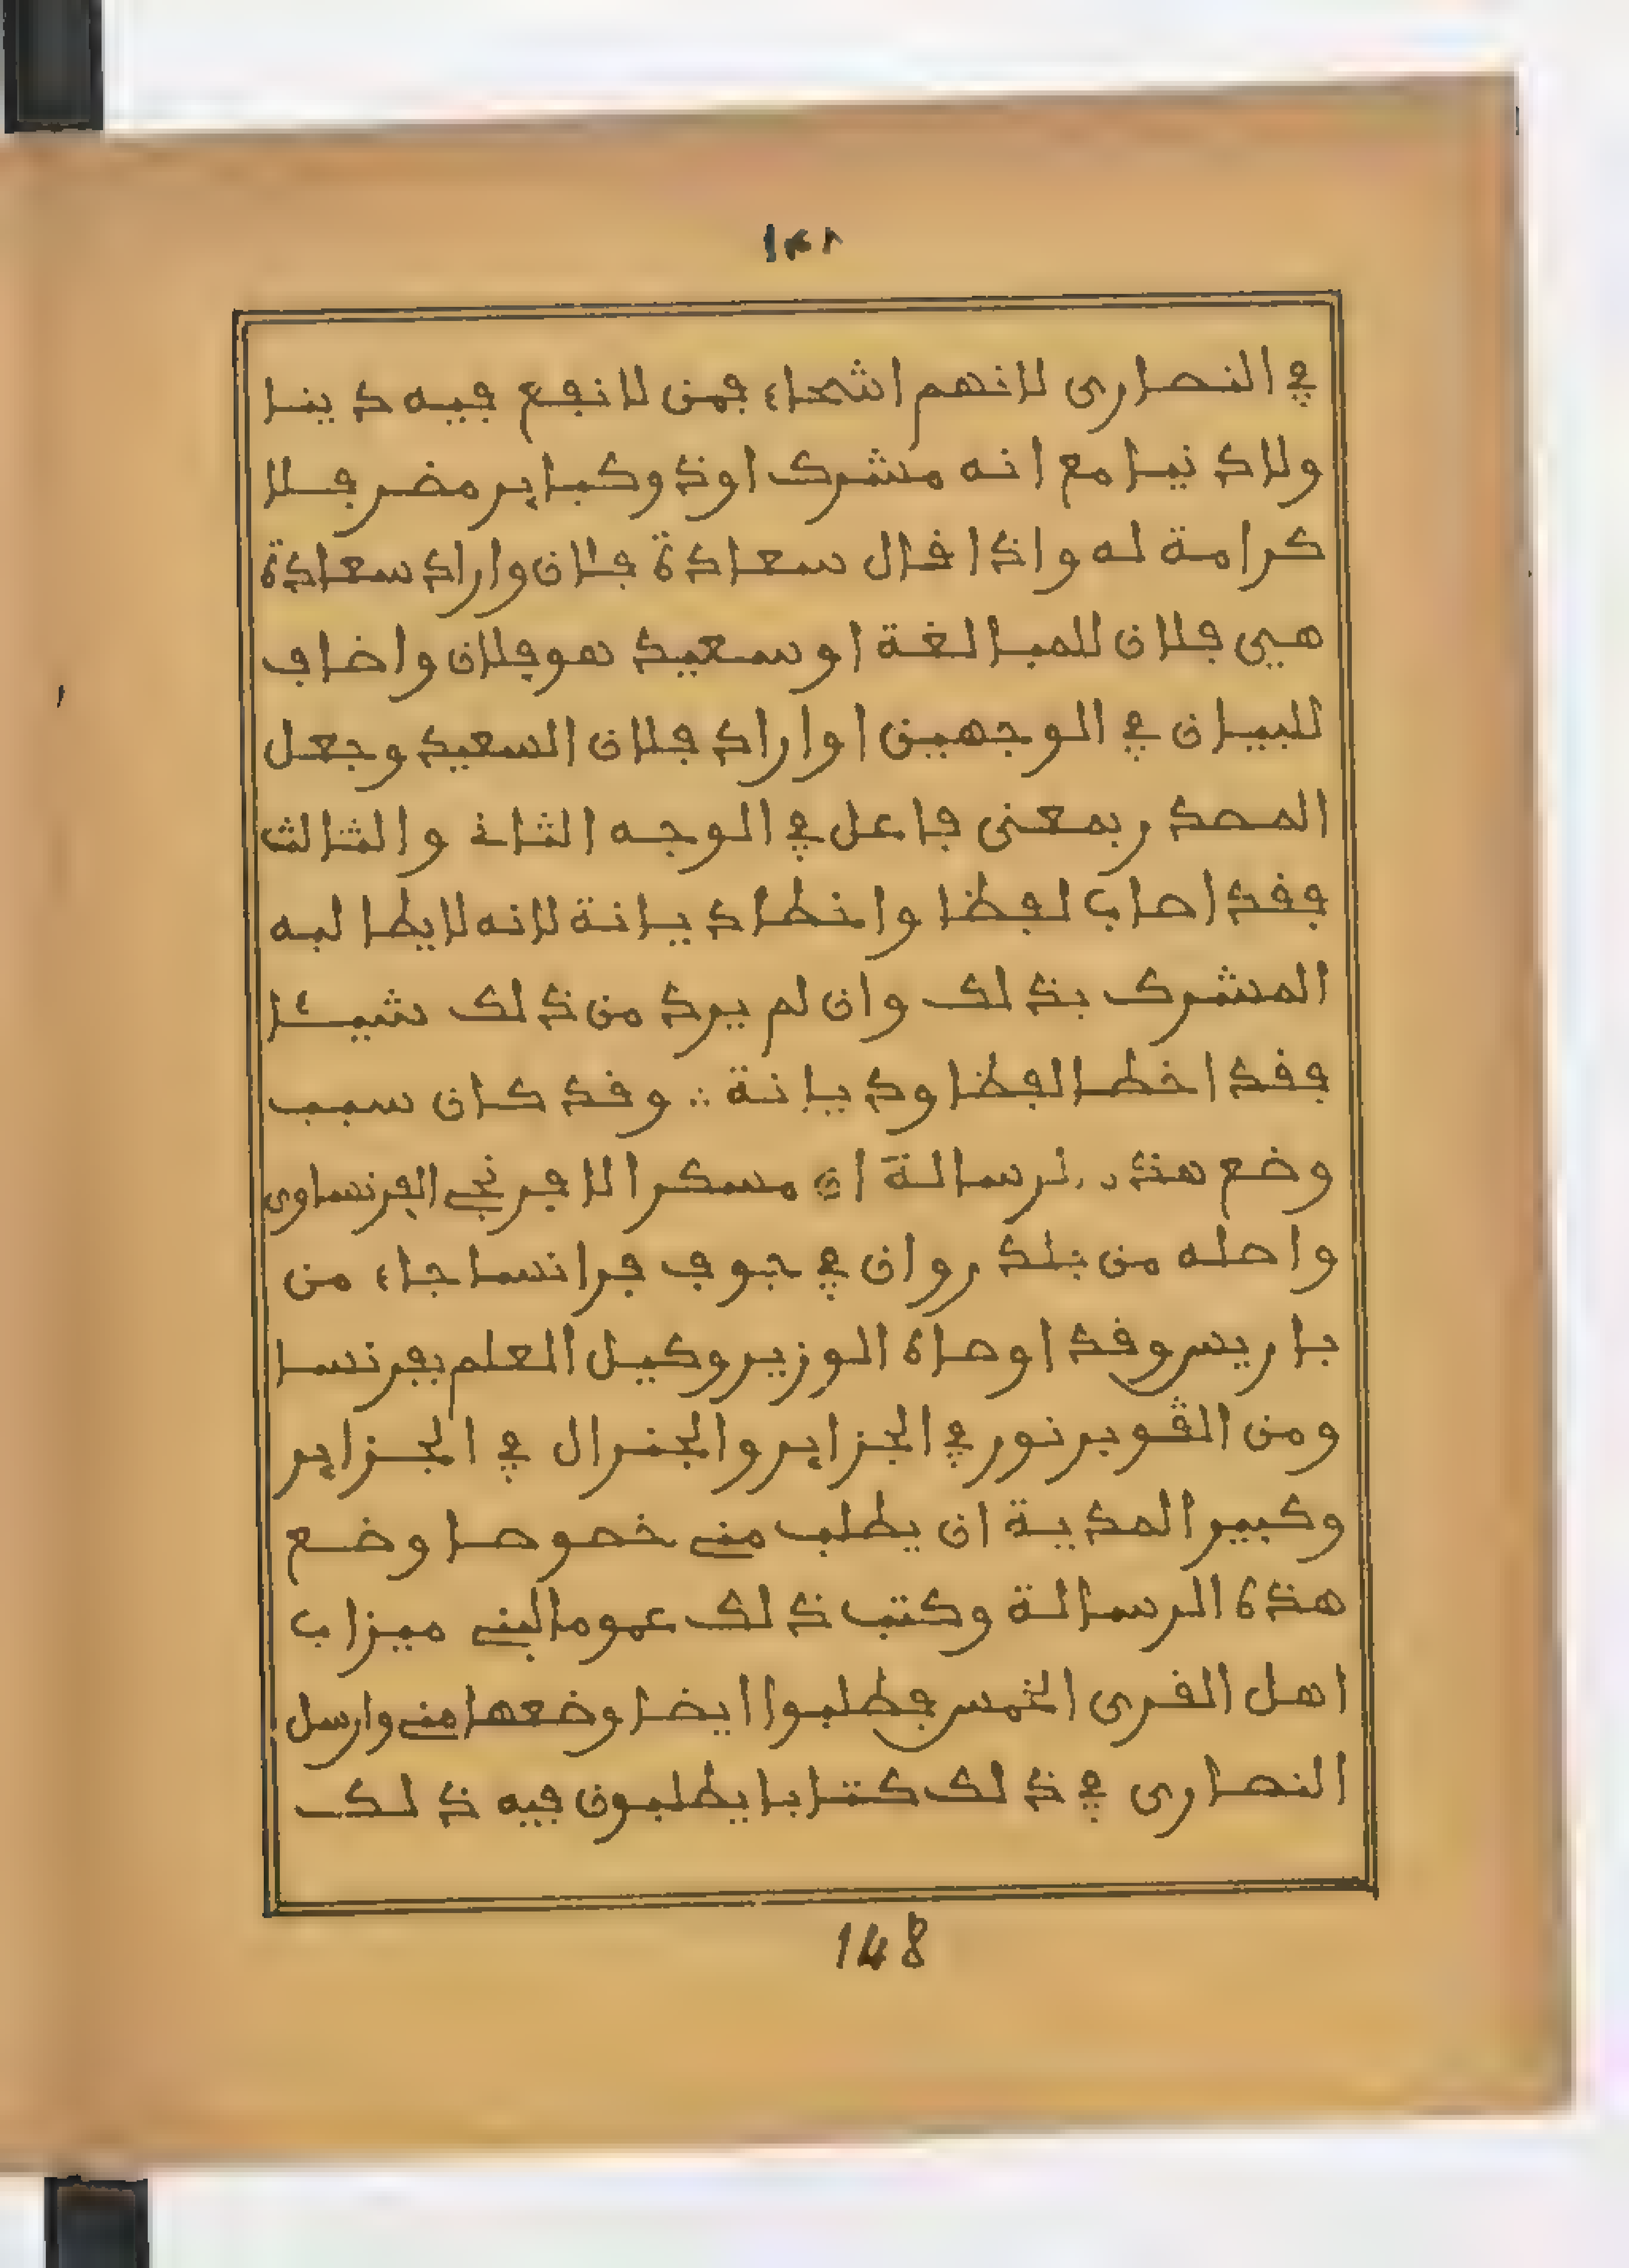 ١٤٨
في النصارى لانهم اشحاء فمن لا نفع فيه دينا
ولا دنيا مع انه مشرك او ذو كباير مضر فلا
كرامة له واذا قال سعادة فلان واراد سعادة
هيى فلان للمبالغة او سعيد هو فلان واضاف
للبيان في الوجهين او اراد فلان السعيد وجعل
المصدر بمعنى فاعل في الوجه الثانى والثالث
فقد اصاب لفظا واخطا ديانة لانه لا يطالبه
المشرك بذلك وان لم يرد من ذلك شيئا
فقد اخطا لفظا وديانة ∴ وقد كان سبب
وضع هذه الرسالة ان مسكرا الافرنجي الفرنساوى
واصله من بلد روان في جوف فرانسا جاء من
باريس وقد اوصاه الوزير وكيل العلم بفرنسا
ومن الڨوبرنور في الجزاير والجنرال في الجزاير
وكبير المدية ان يطلب منى خصوصا وضع
هذه الرسالة وكتب ذلك عموما لبنى ميزاب
اهل القرى الخمس فطلبوا ايضا وضعها منى وارسل
النصارى في ذلك كتابا يطلبون فيه ذلك
148